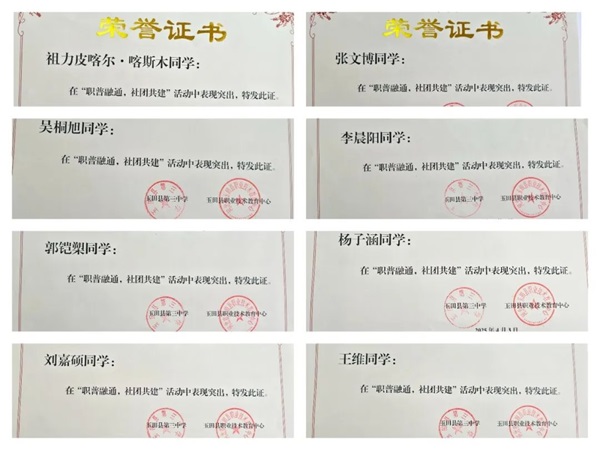 荣誉证书
祖力皮喀尔·喀斯木同学:
在“职普融通,社团共建”活动中表现突出,特发此证。
荣誉证书
张文博同学:
在“职普融通,社团共建”活动中表现突出,特发此证。
吴桐旭同学:
在“职普融通,社团共建”活动中表现突出,特发此证。
玉田县第三中学 玉田县职业技术教育中心
李晨阳同学:
在“职普融通,社团共建”活动中表现突出,特发此证。
玉田县第三中学 玉田县职业技术教育中心
郭铠槊同学:
在“职普融通,社团共建”活动中表现突出,特发此证。
玉田县第三中学 玉田县职业技术教育中心
杨子涵同学:
在“职普融通,社团共建”活动中表现突出,特发此证。
玉田县第三中学 玉田县职业技术教育中心
刘嘉硕同学:
在“职普融通,社团共建”活动中表现突出,特发此证。
玉田县第三中学 玉田县职业技术教育中心
王维同学:
在“职普融通,社团共建”活动中表现突出,特发此证。
玉田县第三中学 玉田县职业技术教育中心